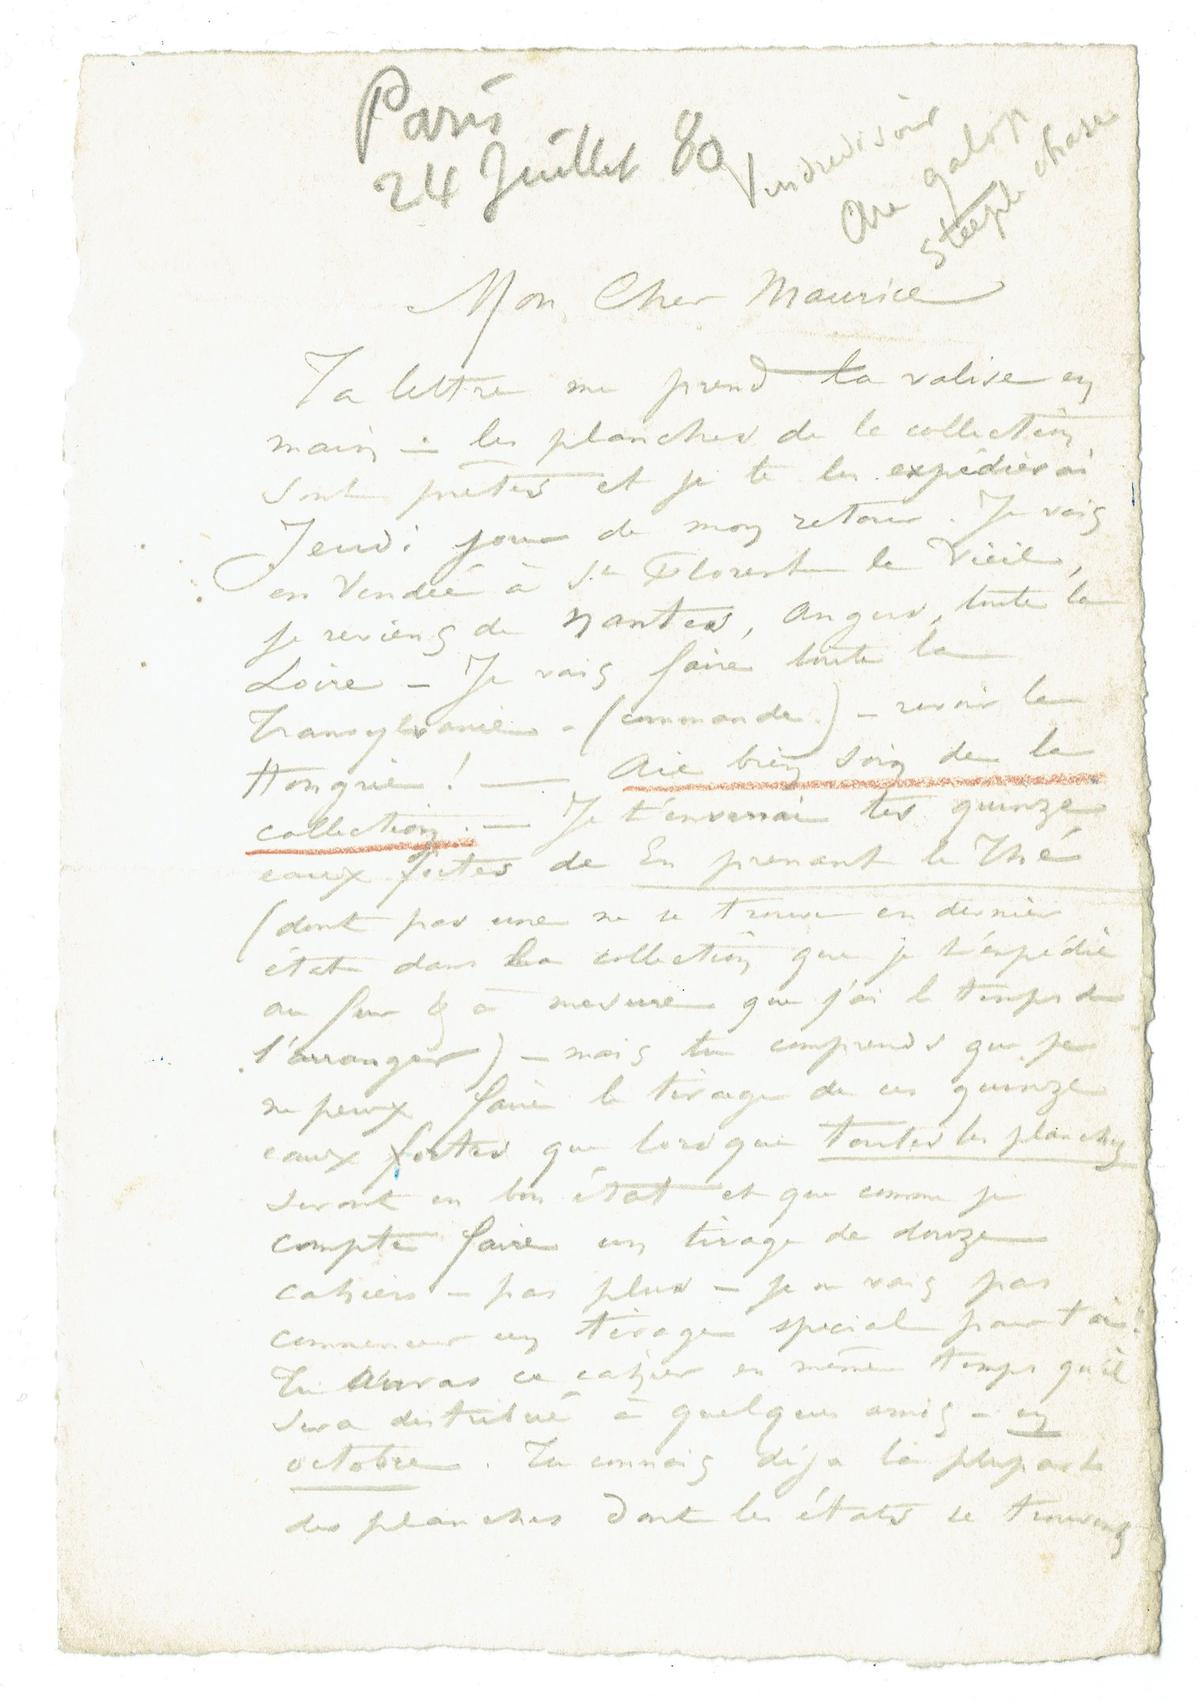 Paris
24 Juillet 80
Vendredi soir
Au galop
steeple chase
Mon Cher Maurice
Ta lettre me prend la valise en
main — les planches de la collection
sont prêtes et je te les expédierai
Jeudi jour de mon retour. Je vais
en Vendée à St Florent le Vieil,
je reviens de Nantes, Angers, toute la
Loire — Je vais faire toute la
Transylvanie - (commande) - revoir la
Hongrie ! — Aie bien soin de la
collection. — Je t'enverrai les quinze
eaux fortes de En prenant le Thé
(dont pas une ne se trouve en dernier
état dans la collection que je t'expédie
au fur & à mesure que j'ai le temps de
l'arranger) — mais tu comprends que je
ne peux faire le tirage de ces quinze
eaux fortes que lorsque toutes les planches
seront en bon état et que comme je
compte faire un tirage de douze
cahiers — pas plus — je ne vais pas
commencer un tirage spécial pour toi.
Tu auras ce cahier en même temps qu'il
sera distribué à quelques amis — en
octobre. Tu connais déja la plupart
des planches dont les états se trouvent